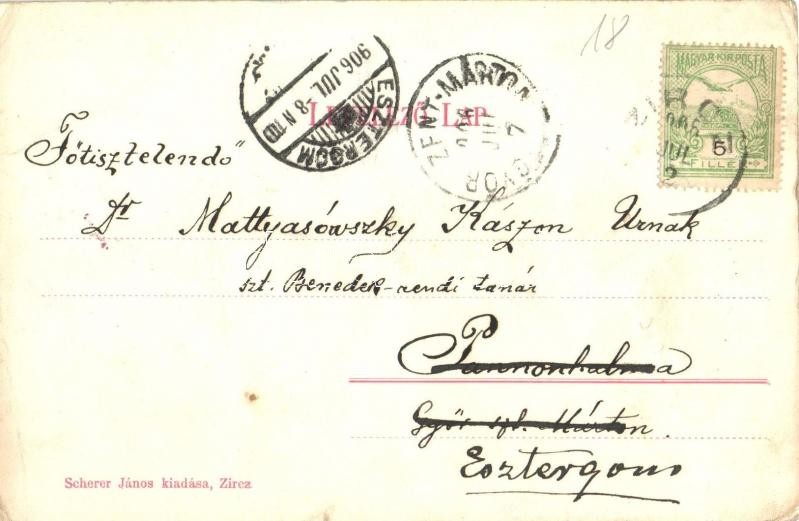 18
MAGYAR·KIR·POSTA
5
FILLÉR
ESZTERGOM
906 JUL 8 N
GYŐR SZENT-MÁRTON
JUL 7
LEVELEZŐ LAP
„Főtisztelendő"
Dr Mattyasówszky Kászon Urnak
szt. Benedek-rendi tanár
Pannonhalma
Győr szt. Márton.
Esztergom
Scherer János kiadása, Zirez